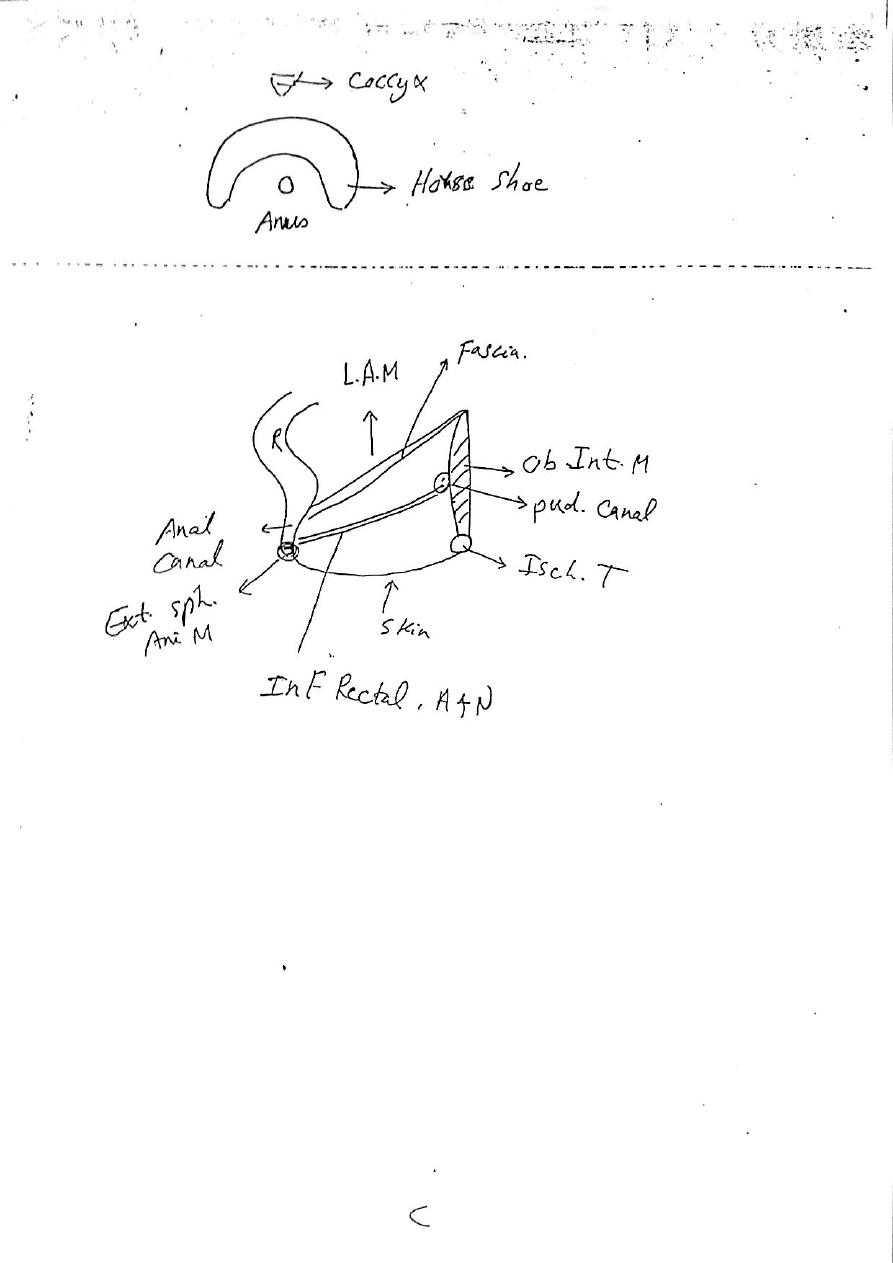 Coccyx
Horse Shoe
Anus
Fascia.
L.A.M
R
Ob Int. M
pud. Canal
Anal
Canal
Isch. T
Ext. sph.
Ani M
Skin
Inf Rectal, A & N